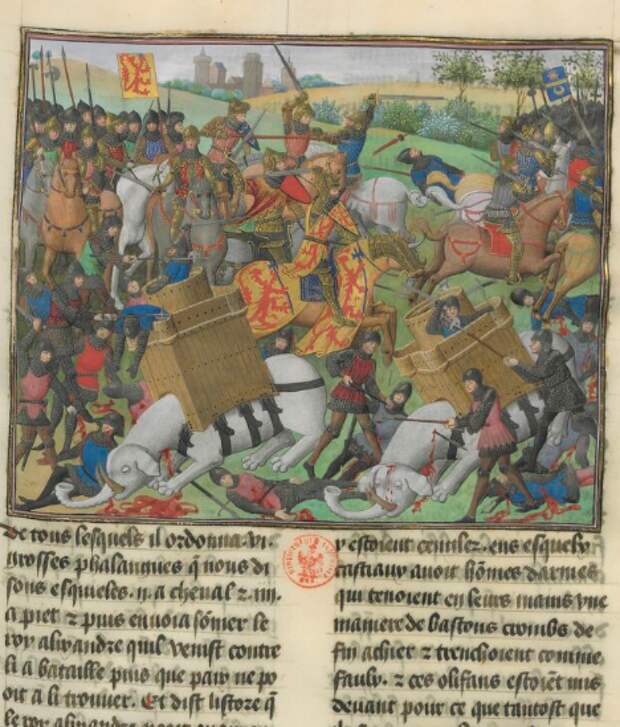 de tous lesquels il ordonna .vi.
grosses phalangues q̃ nous di
sons esquieles .ii. a cheual ⁊ .iiii.
a piet ⁊ puis enuoia sõmer le
roy alixandre quil venist contre
li a bataille puis que paix ne po
oit a li trouuer. Et dist listore q̃
le roy alixandre
y estoient ens esquelx
castiaux auoit hõmes darmes
qui tenoient en leurs mains vne
maniere de bastons crombs de
fin achier ⁊ trenchoient comme
faulx. ⁊ ces olifans estoiẽt mis
deuant pour ce que tantost que